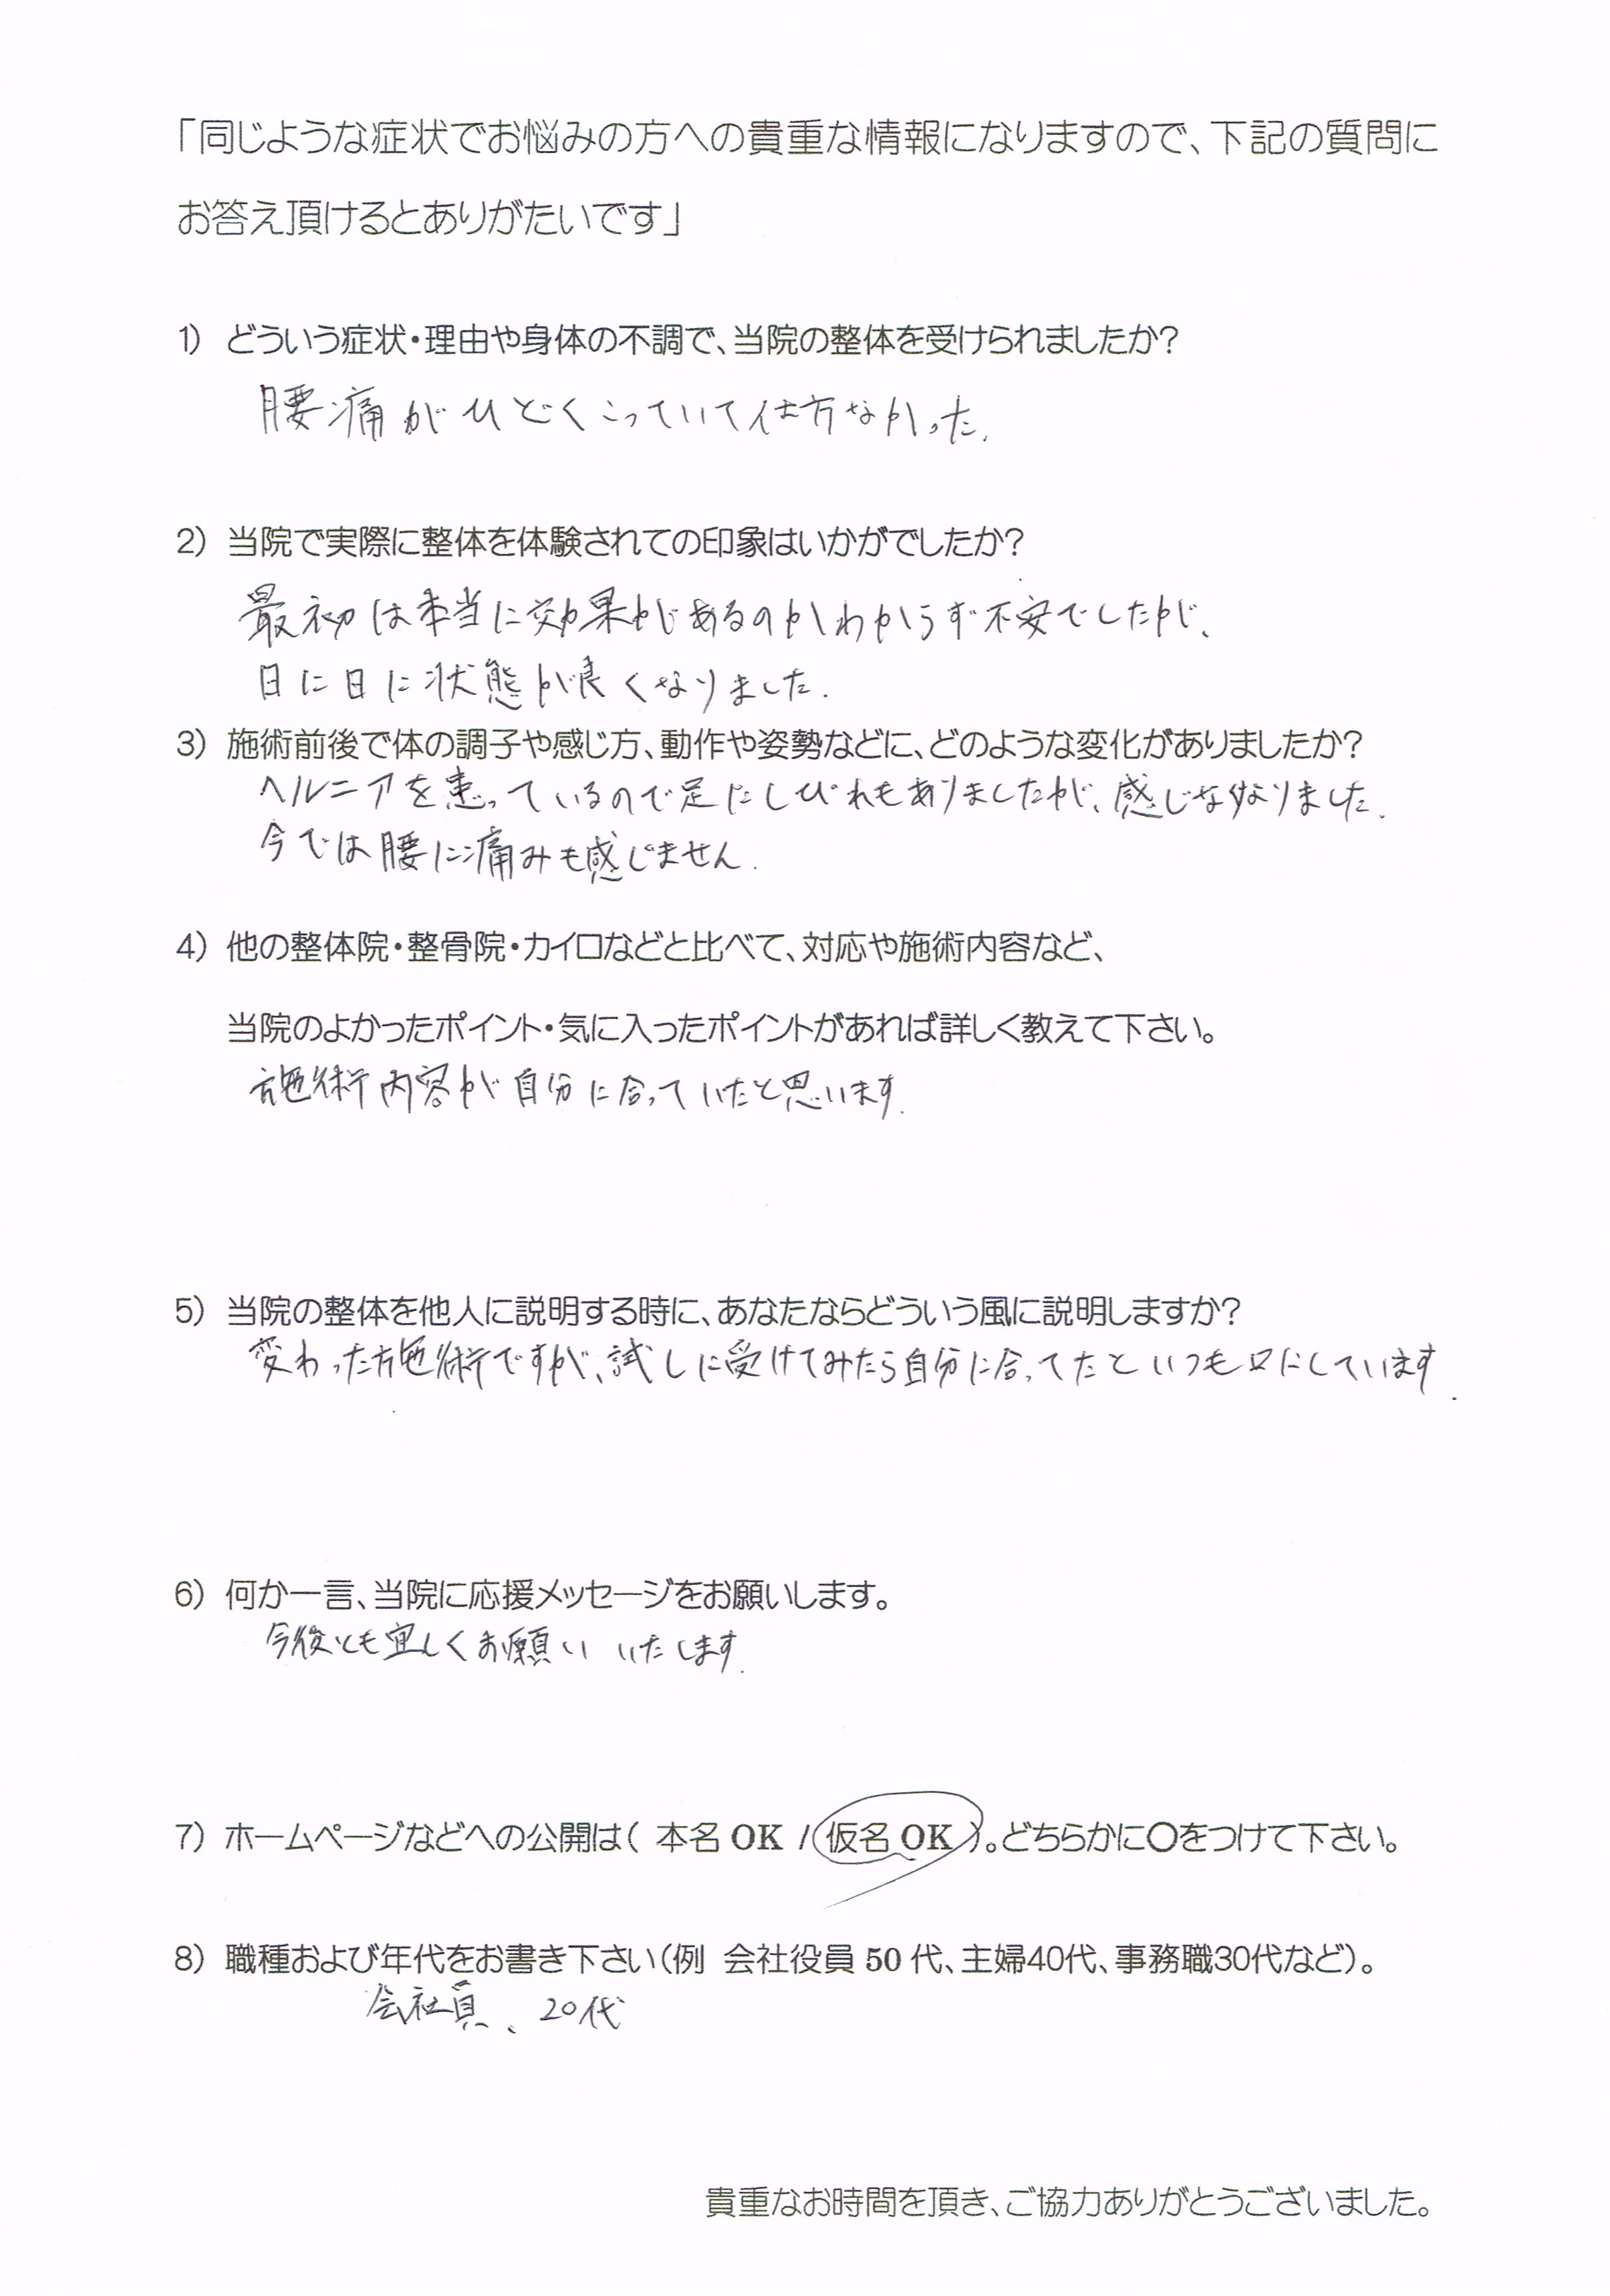 「同じような症状でお悩みの方への貴重な情報になりますので、下記の質問に
お答え頂けるとありがたいです」
1) どういう症状・理由や身体の不調で、当院の整体を受けられましたか?
腰痛がひどくこっていて仕方なかった.
2) 当院で実際に整体を体験されての印象はいかがでしたか?
最初は本当に効果があるのかわからず不安でしたが、
日に日に状態が良くなりました.
3) 施術前後で体の調子や感じ方、動作や姿勢などに、どのような変化がありましたか?
ヘルニアを患っているので足にしびれもありましたが、感じなくなりました.
今では腰に痛みも感じません.
4) 他の整体院・整骨院・カイロなどと比べて、対応や施術内容など、
当院のよかったポイント・気に入ったポイントがあれば詳しく教えて下さい。
施術内容が自分に合っていたと思います.
5) 当院の整体を他人に説明する時に、あなたならどういう風に説明しますか?
変わった施術ですが、試しに受けてみたら自分に合ってたといつも口にしています.
6) 何か一言、当院に応援メッセージをお願いします。
今後とも宜しくお願いいたします.
7) ホームページなどへの公開は( 本名 OK / 仮名 OK )。どちらかに○をつけて下さい。
8) 職種および年代をお書き下さい(例 会社役員 50 代、主婦40代、事務職30代など)。
会社員、20代
貴重なお時間を頂き、ご協力ありがとうございました。